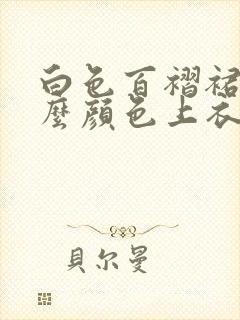 白色百褶裙
麼顔色上衣
貝尔曼